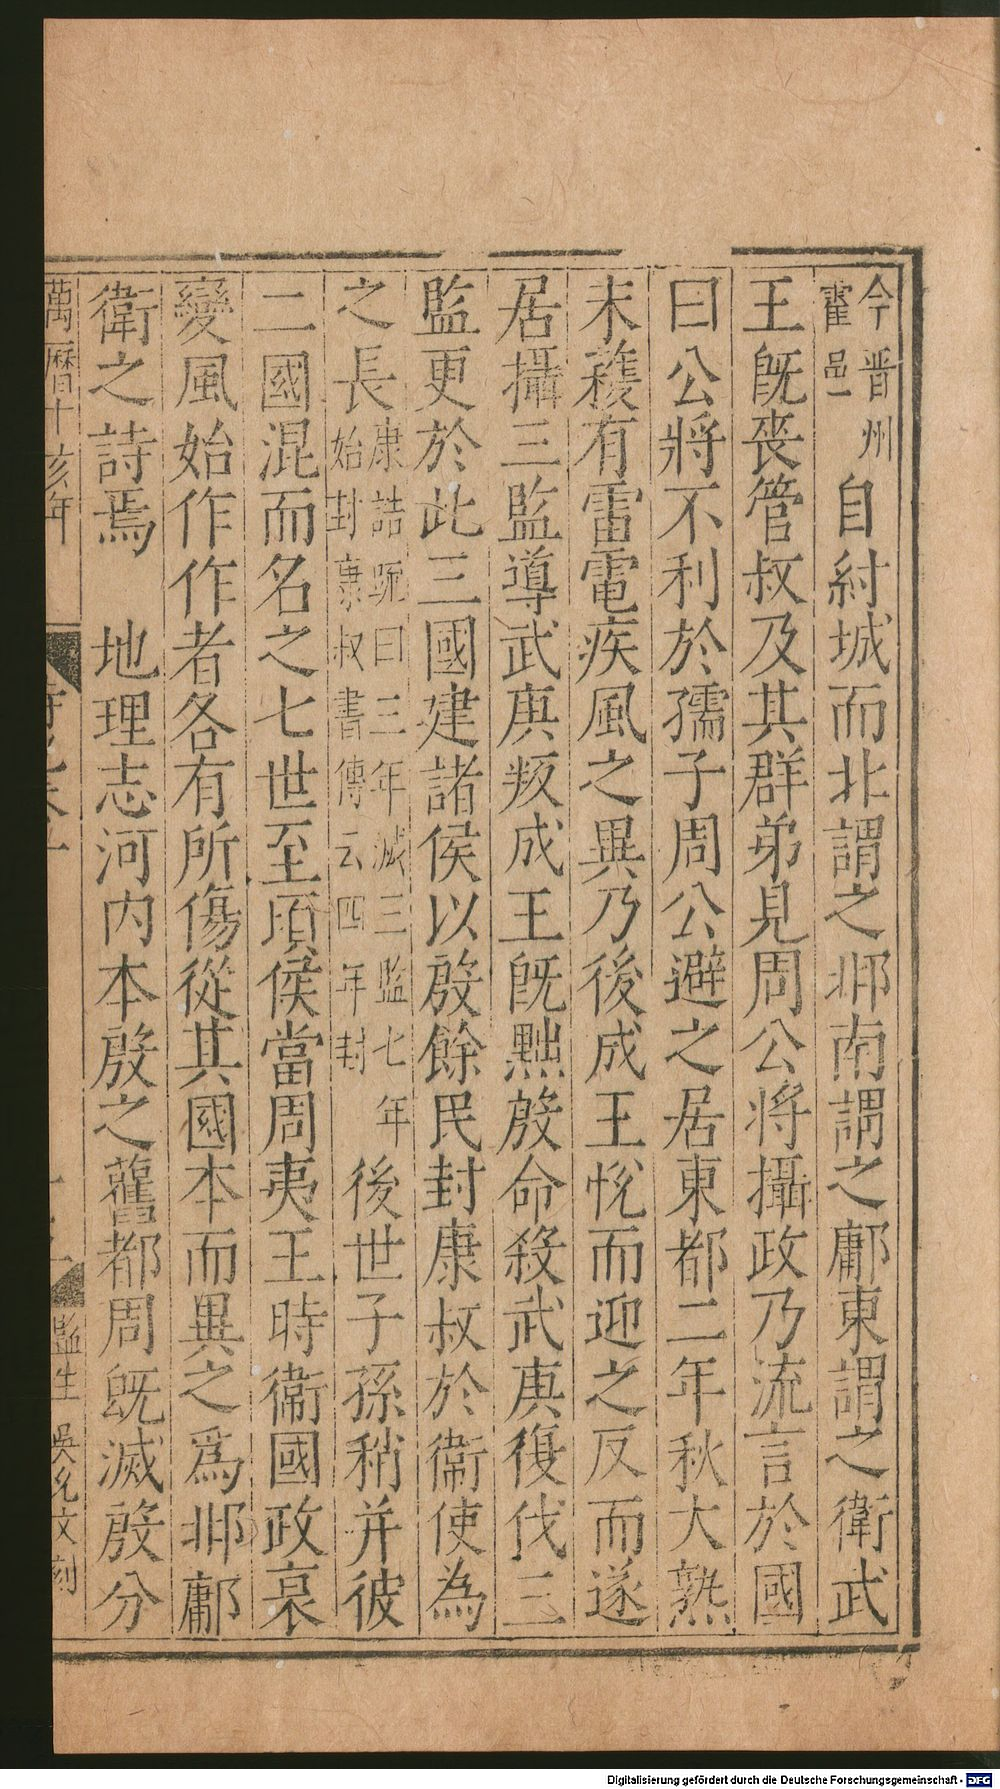 今晋州
霍邑 自紂城而北謂之邶南謂之鄘東謂之衛武
王旣喪管叔及其群弟見周公將攝政乃流言於國
曰公將不利於孺子周公避之居東都二年秋大熟
未穫有雷電疾風之異乃後成王悅而迎之反而遂
居攝三監導武庚叛成王旣黜殷命殺武庚復伐三
監更於此三國建諸侯以殷餘民封康叔於衞使為
之長 康誥疏曰三年滅三監七年
始封康叔書傳云四年封 後世子孫稍并彼
二國混而名之七世至頃侯當周夷王時衞國政衰
變風始作作者各有所傷從其國本而異之爲邶鄘
衛之詩焉 地理志河内本殷之舊都周旣滅殷分
萬曆十 亥年
監生 吳 文刻
Digitalisierung gefördert durch die Deutsche Forschungsgemeinschaft - DFG